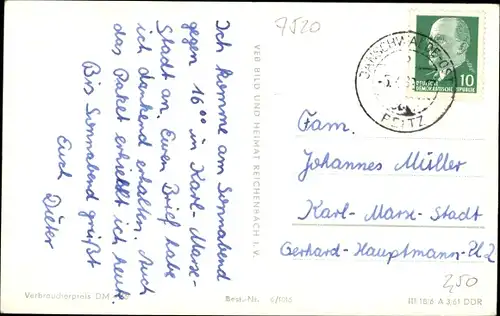 7520
Ich komme am Sonnabend
gegen 16⁰⁰ in Karl-Marx-
Stadt an. Euren Brief habe
ich dankend erhalten. Auch
das Paket erhielt ich heute.
Bis Sonnabend grüßt
Euch Dieter
VEB BILD UND HEIMAT REICHENBACH I. V.
PEITZ
10
DEUTSCHE
DEMOKRATISCHE REPUBLIK
Fam.
Johannes Müller
Karl-Marx-Stadt
Gerhard-Hauptmann-Pl. 2
2,50
Verbraucherpreis DM
Best.-Nr.
III/18/6 A 3/61 DDR